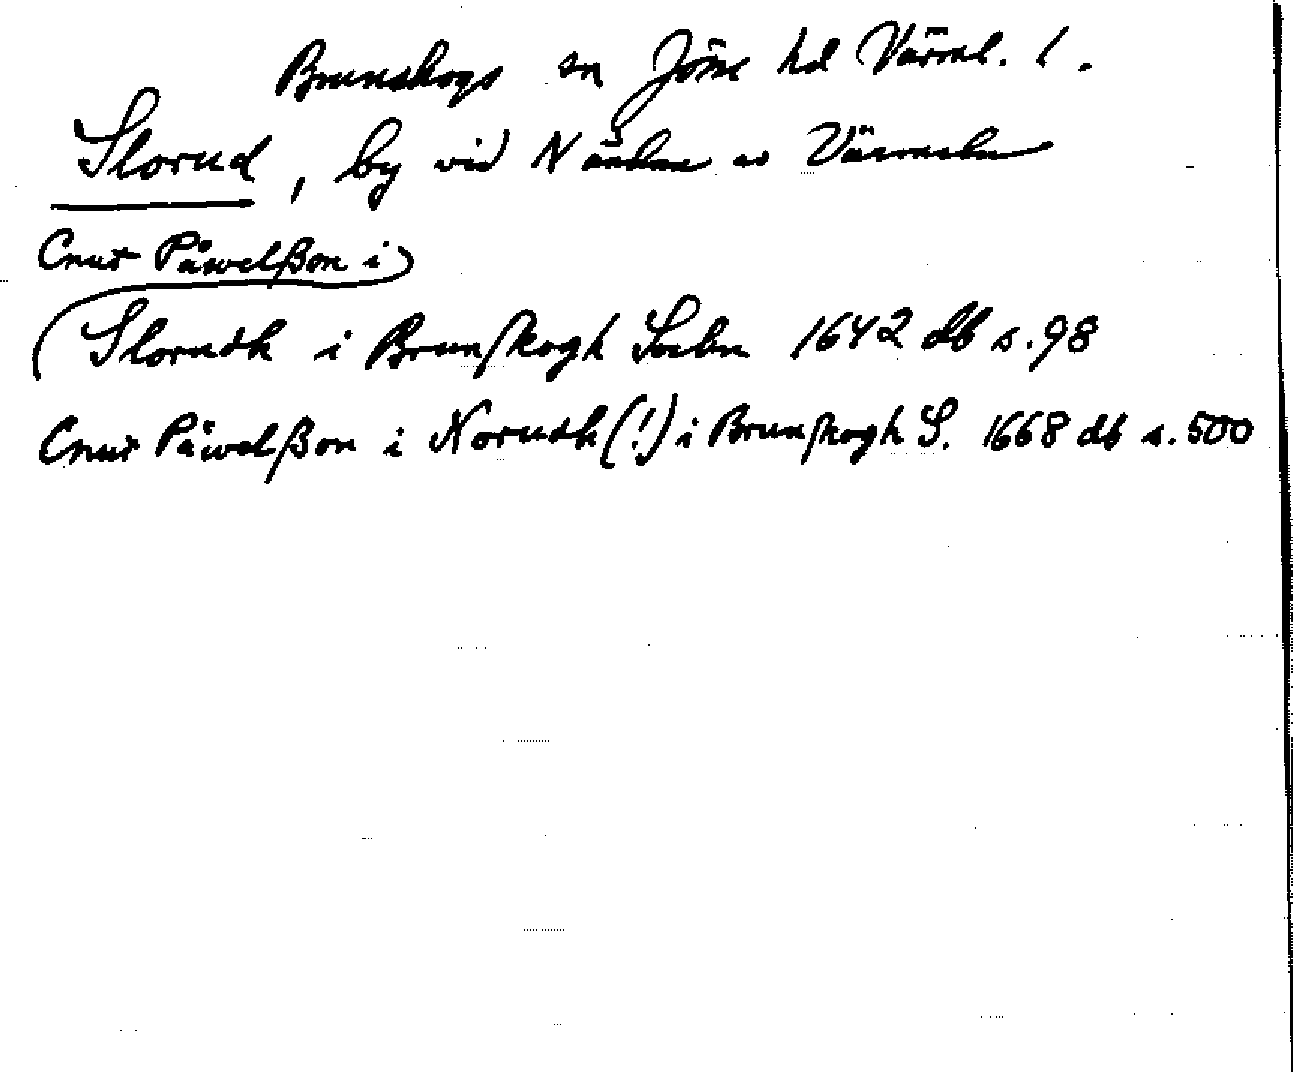 Brunskogs sn Jösse hd Värml. l.
Slorud, by vid N änden av Värmeln
Cnut Påwelßon i
Slorudh i Brunskogh Sochn 1642 db s. 98
Cnut Påwelßon i Norudh (!) i Brunskogh S. 1668 db s. 500